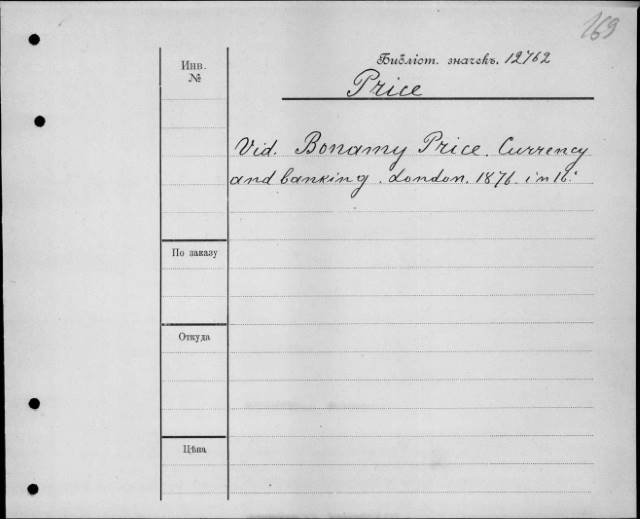 169
Инв.
№
Библіот. значекъ. 12762
Price
Vid. Bonamy Price. Currency
and banking. London. 1876. in 16.°
По заказу
Откуда
Цѣна